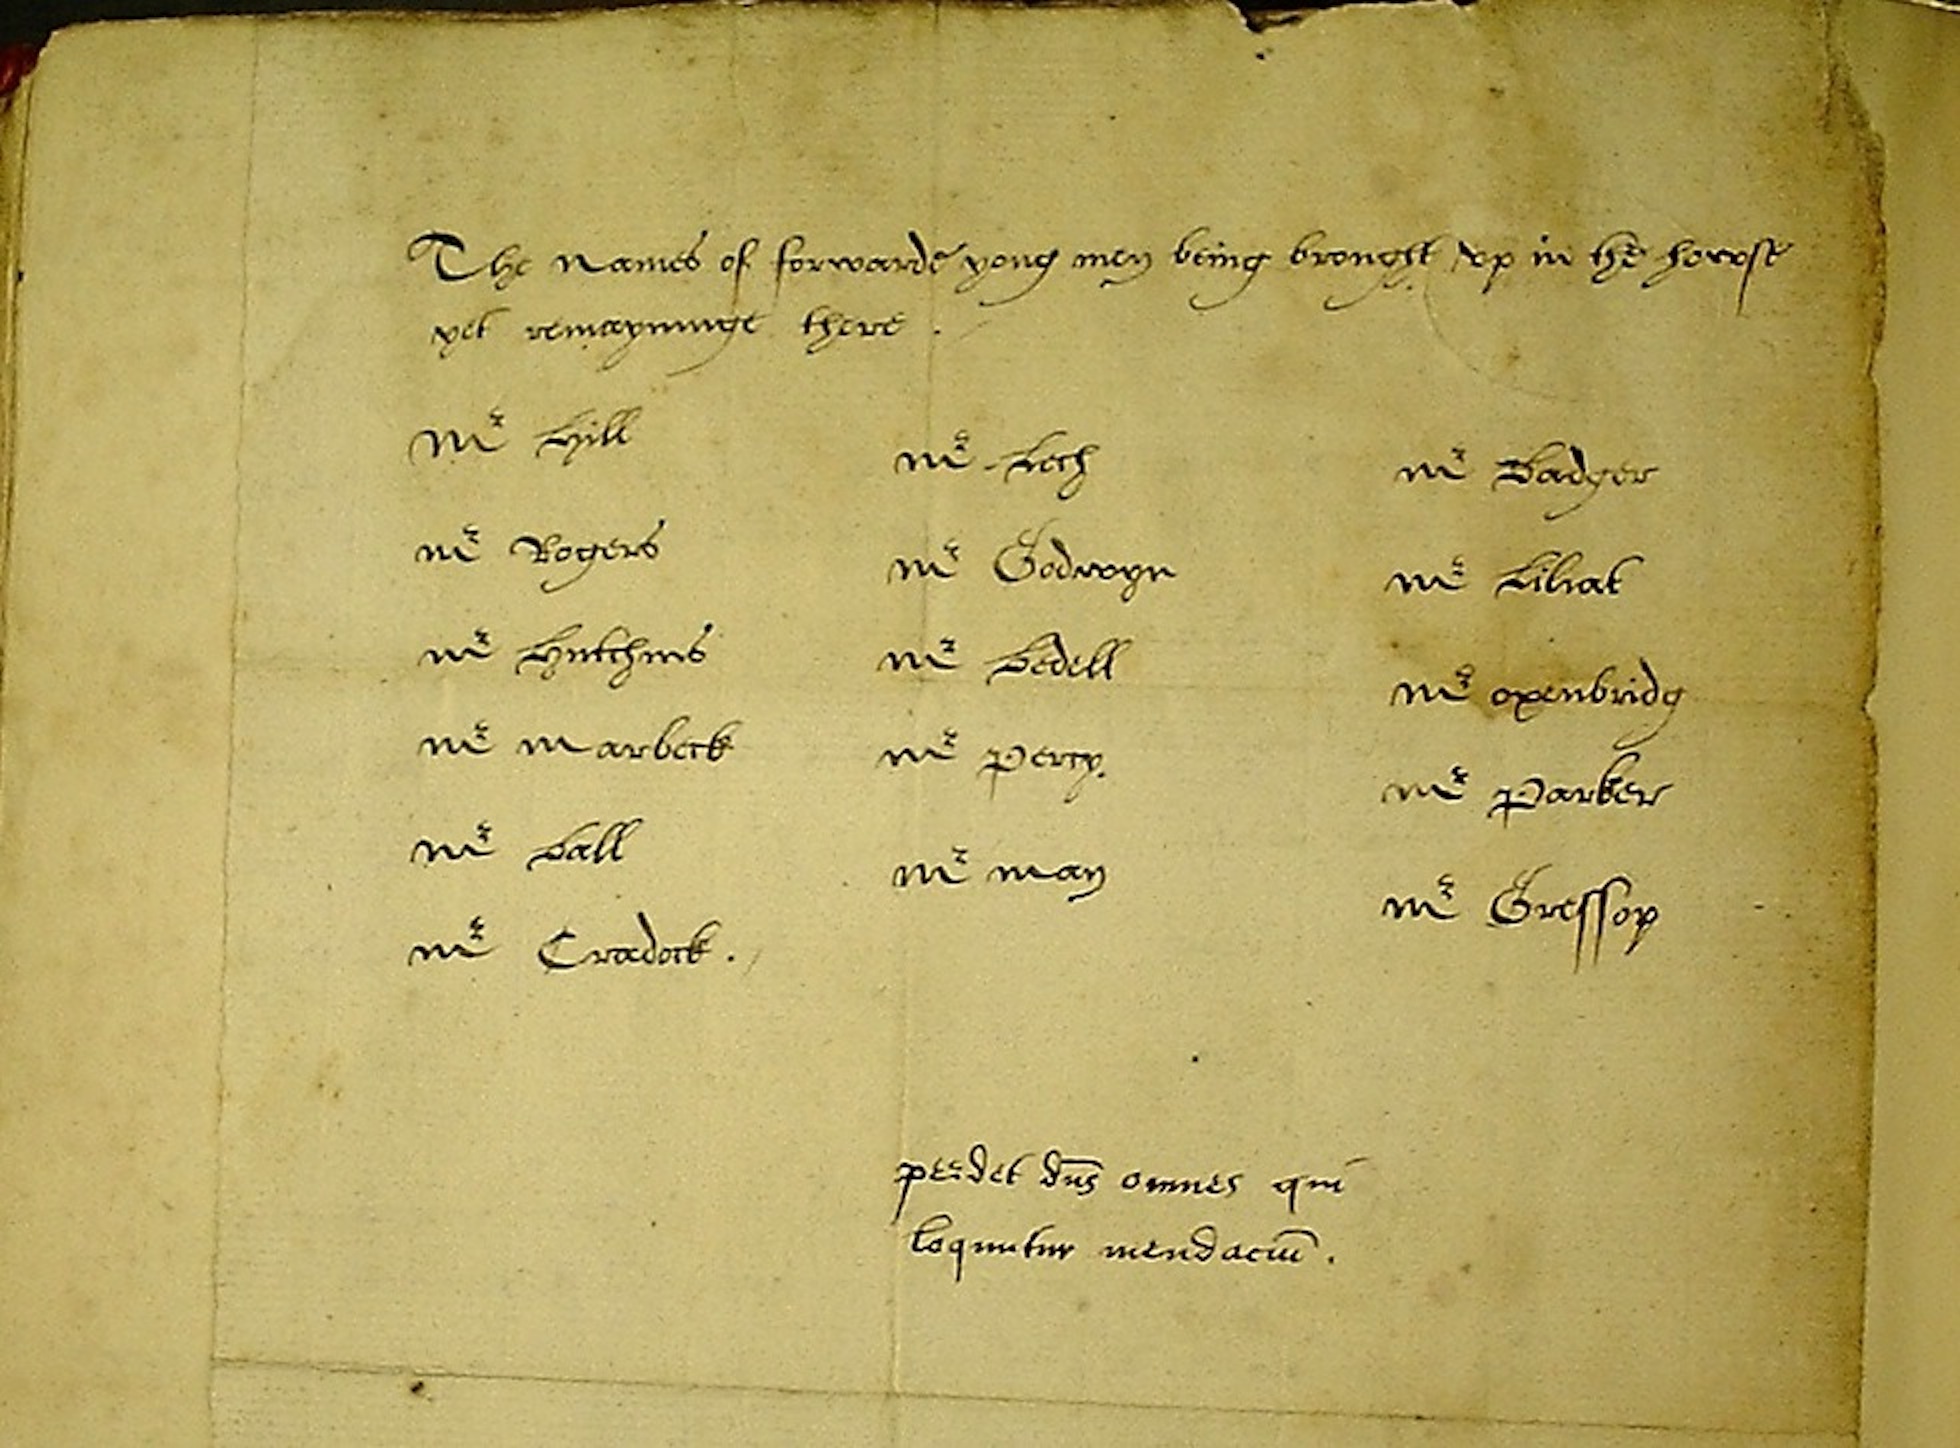 The names of forwarde yong men being brought vp in the howse
yet remayninge there .
Mr Hyll
mr Rogers
mr Hutchins
mr Marbeck
mr Ball
mr Cradock .
mr Lech
mr Godwyn
mr Bedell
mr Percy.
mr man
mr Badger
mr
mr oxenbridg
mr Parker
mr Gressop
perdet dn̄s omnes qui
loquutur mendaciū .